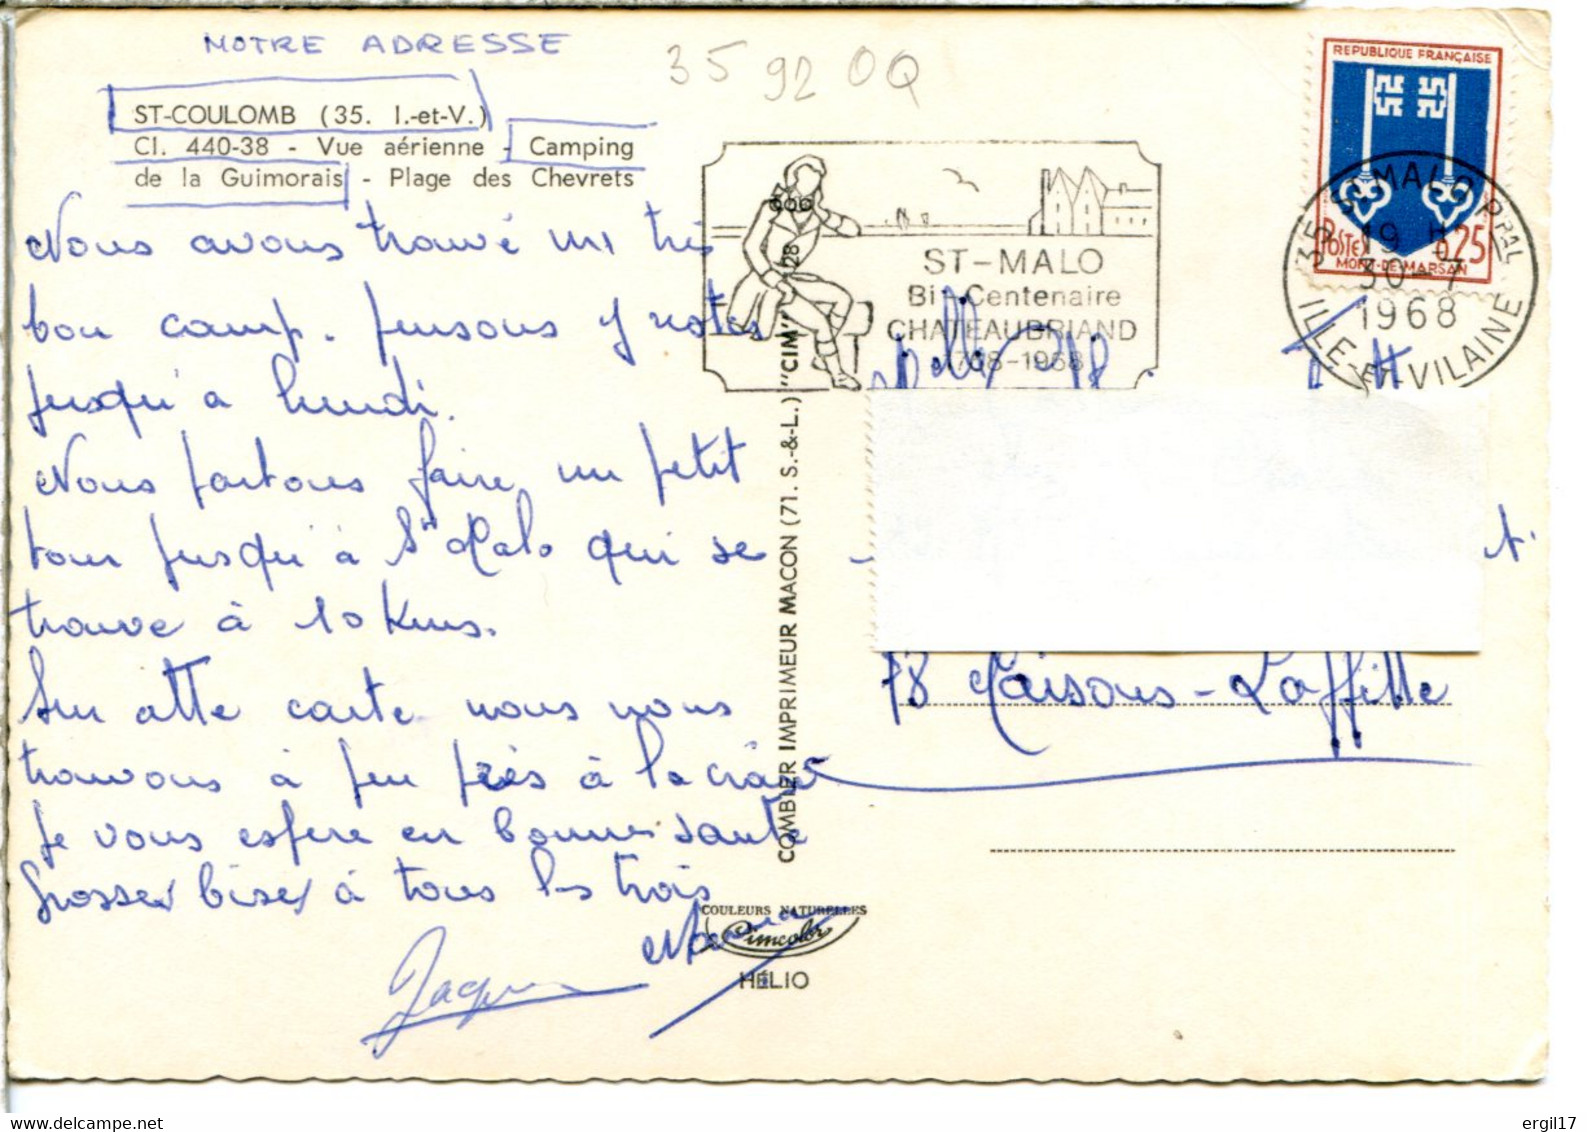 NOTRE ADRESSE
35 92 0Q
ST-COULOMB (35. I.-et-V.)
Cl. 440-38 - Vue aérienne - Camping
de la Guimorais - Plage des Chevrets
Nous avons trouvé un très
bon camp. pensons y rester
jusqu'à lundi.
Nous partons faire un petit
tour jusqu'à St Malo qui se
trouve à 10 Kms.
Sur cette carte nous nous
trouvons à peu près à la croix
Je vous espere en bonnes santé
Grosses bises à tous les trois
Jacques
COMBIER IMPRIMEUR MACON (71. S.-&-L.) "CIM"
COULEURS NATURELLES
Cimcolor
HÉLIO
ST-MALO
Bi-Centenaire
CHATEAUBRIAND
1768-1968
REPUBLIQUE FRANÇAISE
POSTES
0,25
MONT-DE-MARSAN
35 ST MALO PPAL
19 H
30-7
1968
ILLE-ET-VILAINE
78 Maisons-Laffitte
delcampe.net
ergil17